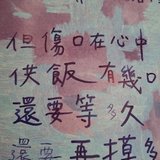 但傷口在心中
供飯 有幾口
還要等多久
還要 再摸多